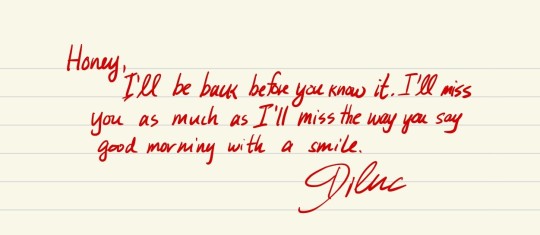 Honey,
I'll be back before you know it. I'll miss
you as much as I'll miss the way you say
good morning with a smile.
Diluc